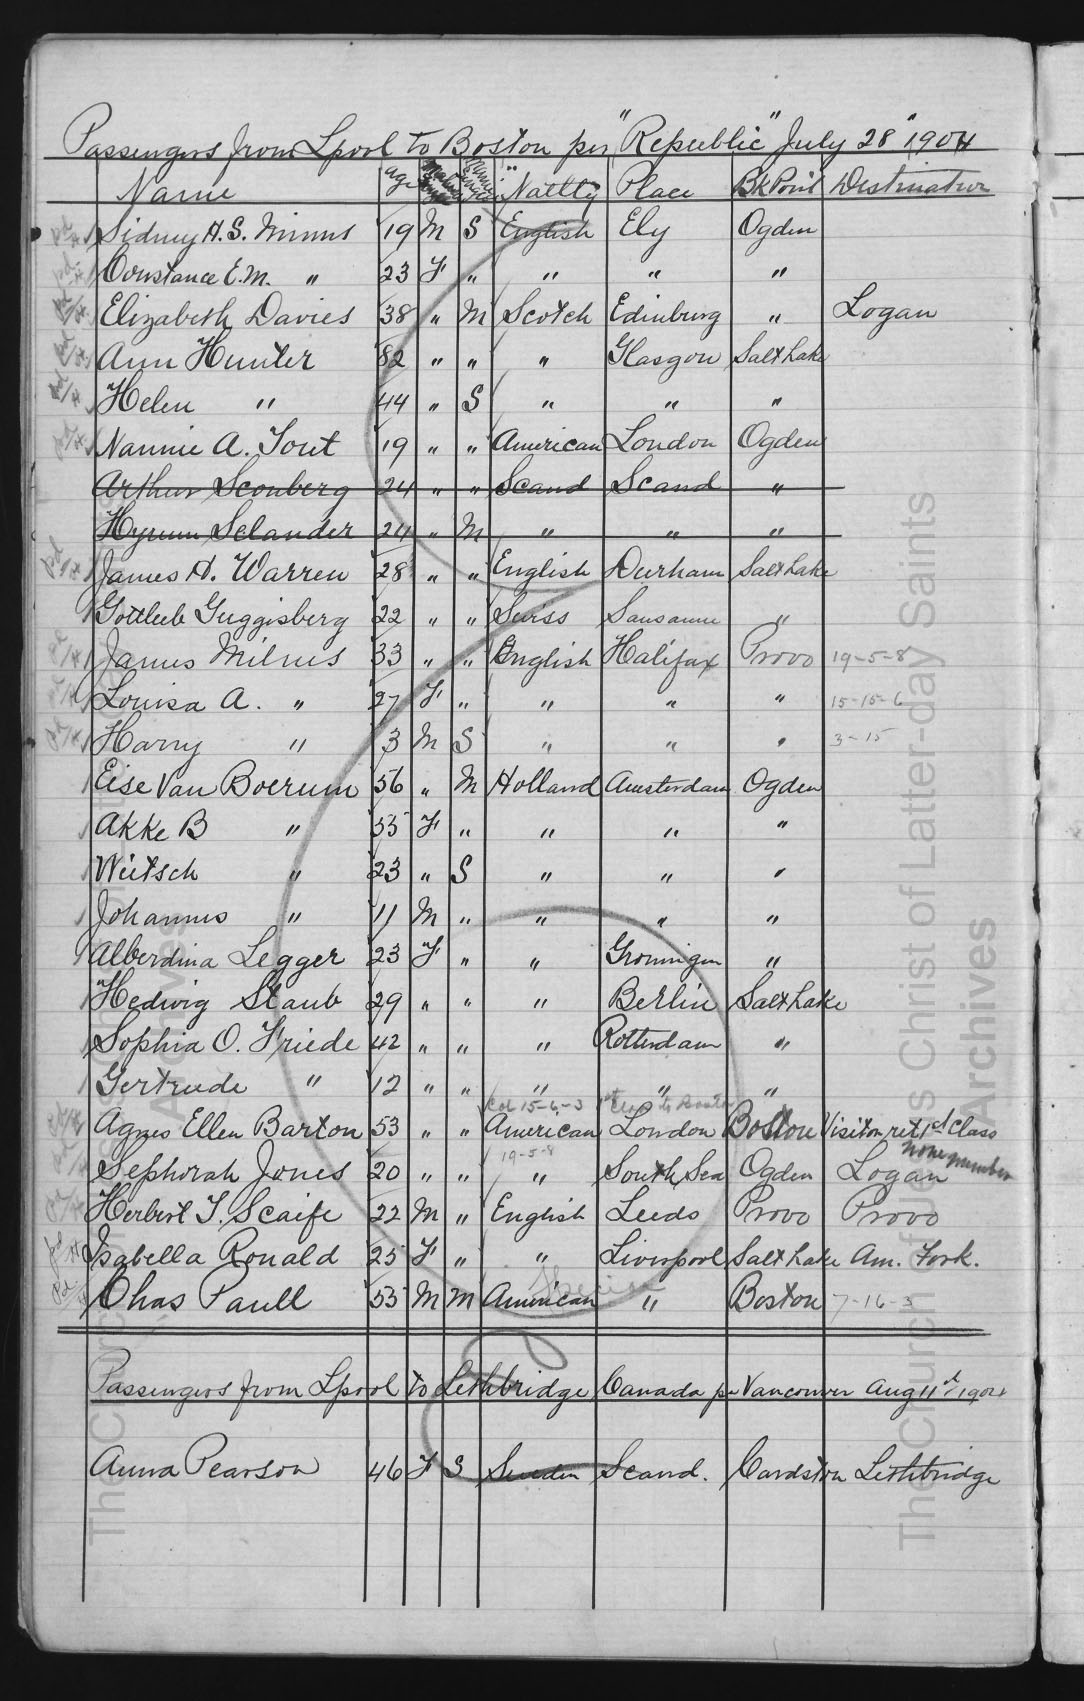 Passengers from Lpool to Boston per "Republic" July 28" 1904
Name Age Natlty Place Bk Point Destination
Sidney H. S. Mimms 19 M S English Ely Ogden
Constance E. M. " 23 F " " " "
Elizabeth Davies 38 " M Scotch Edinburg " Logan
Ann Hunter 82 " " " Glasgow Salt Lake
Helen " 44 " S " " "
Nannie A. Tout 19 " " American London Ogden
Arthur Sconberg 24 " " Scand Scand "
Hyrum Selander 24 " M " " "
James H. Warren 28 " " English Durham Salt Lake
Gottlieb Guggisberg 22 " " Swiss Lausanne "
James Milnes 33 " " English Halifax Provo 19-5-8
Louisa A. " 27 F " " " " 15-15-6
Harry " 3 M S " " " 3-15
Eise Van Boerum 56 " M Holland Amsterdam Ogden
Akke B " 55 F " " " "
Wietsch " 23 " S " " "
Johannes " 11 M " " " "
Alberdina Legger 23 F " " Groningen "
Hedwig Staub 29 " " " Berlin Salt Lake
Sophia O. Friede 42 " " " Rotterdam "
Gertrude " 12 " " " " "
15-6-3 to Boston
Agnes Ellen Barton 53 " " American London Boston Visitor ret 1st Class
19-5-8 None member
Sephorah Jones 20 " " " South Sea Ogden Logan
Herbert T. Scaife 22 M " English Leeds Provo Provo
Isabella Ronald 25 F " " Liverpool Salt Lake Am. Fork.
Chas Paull 55 M M American " Boston 7-16-3
Passengers from Lpool to Lethbridge Canada per Vancouver Aug 11th 1904
Anna Pearson 46 F S Sweden Scand. Cardston Lethbridge
The Church of Jesus Christ of Latter-day Saints
Archives